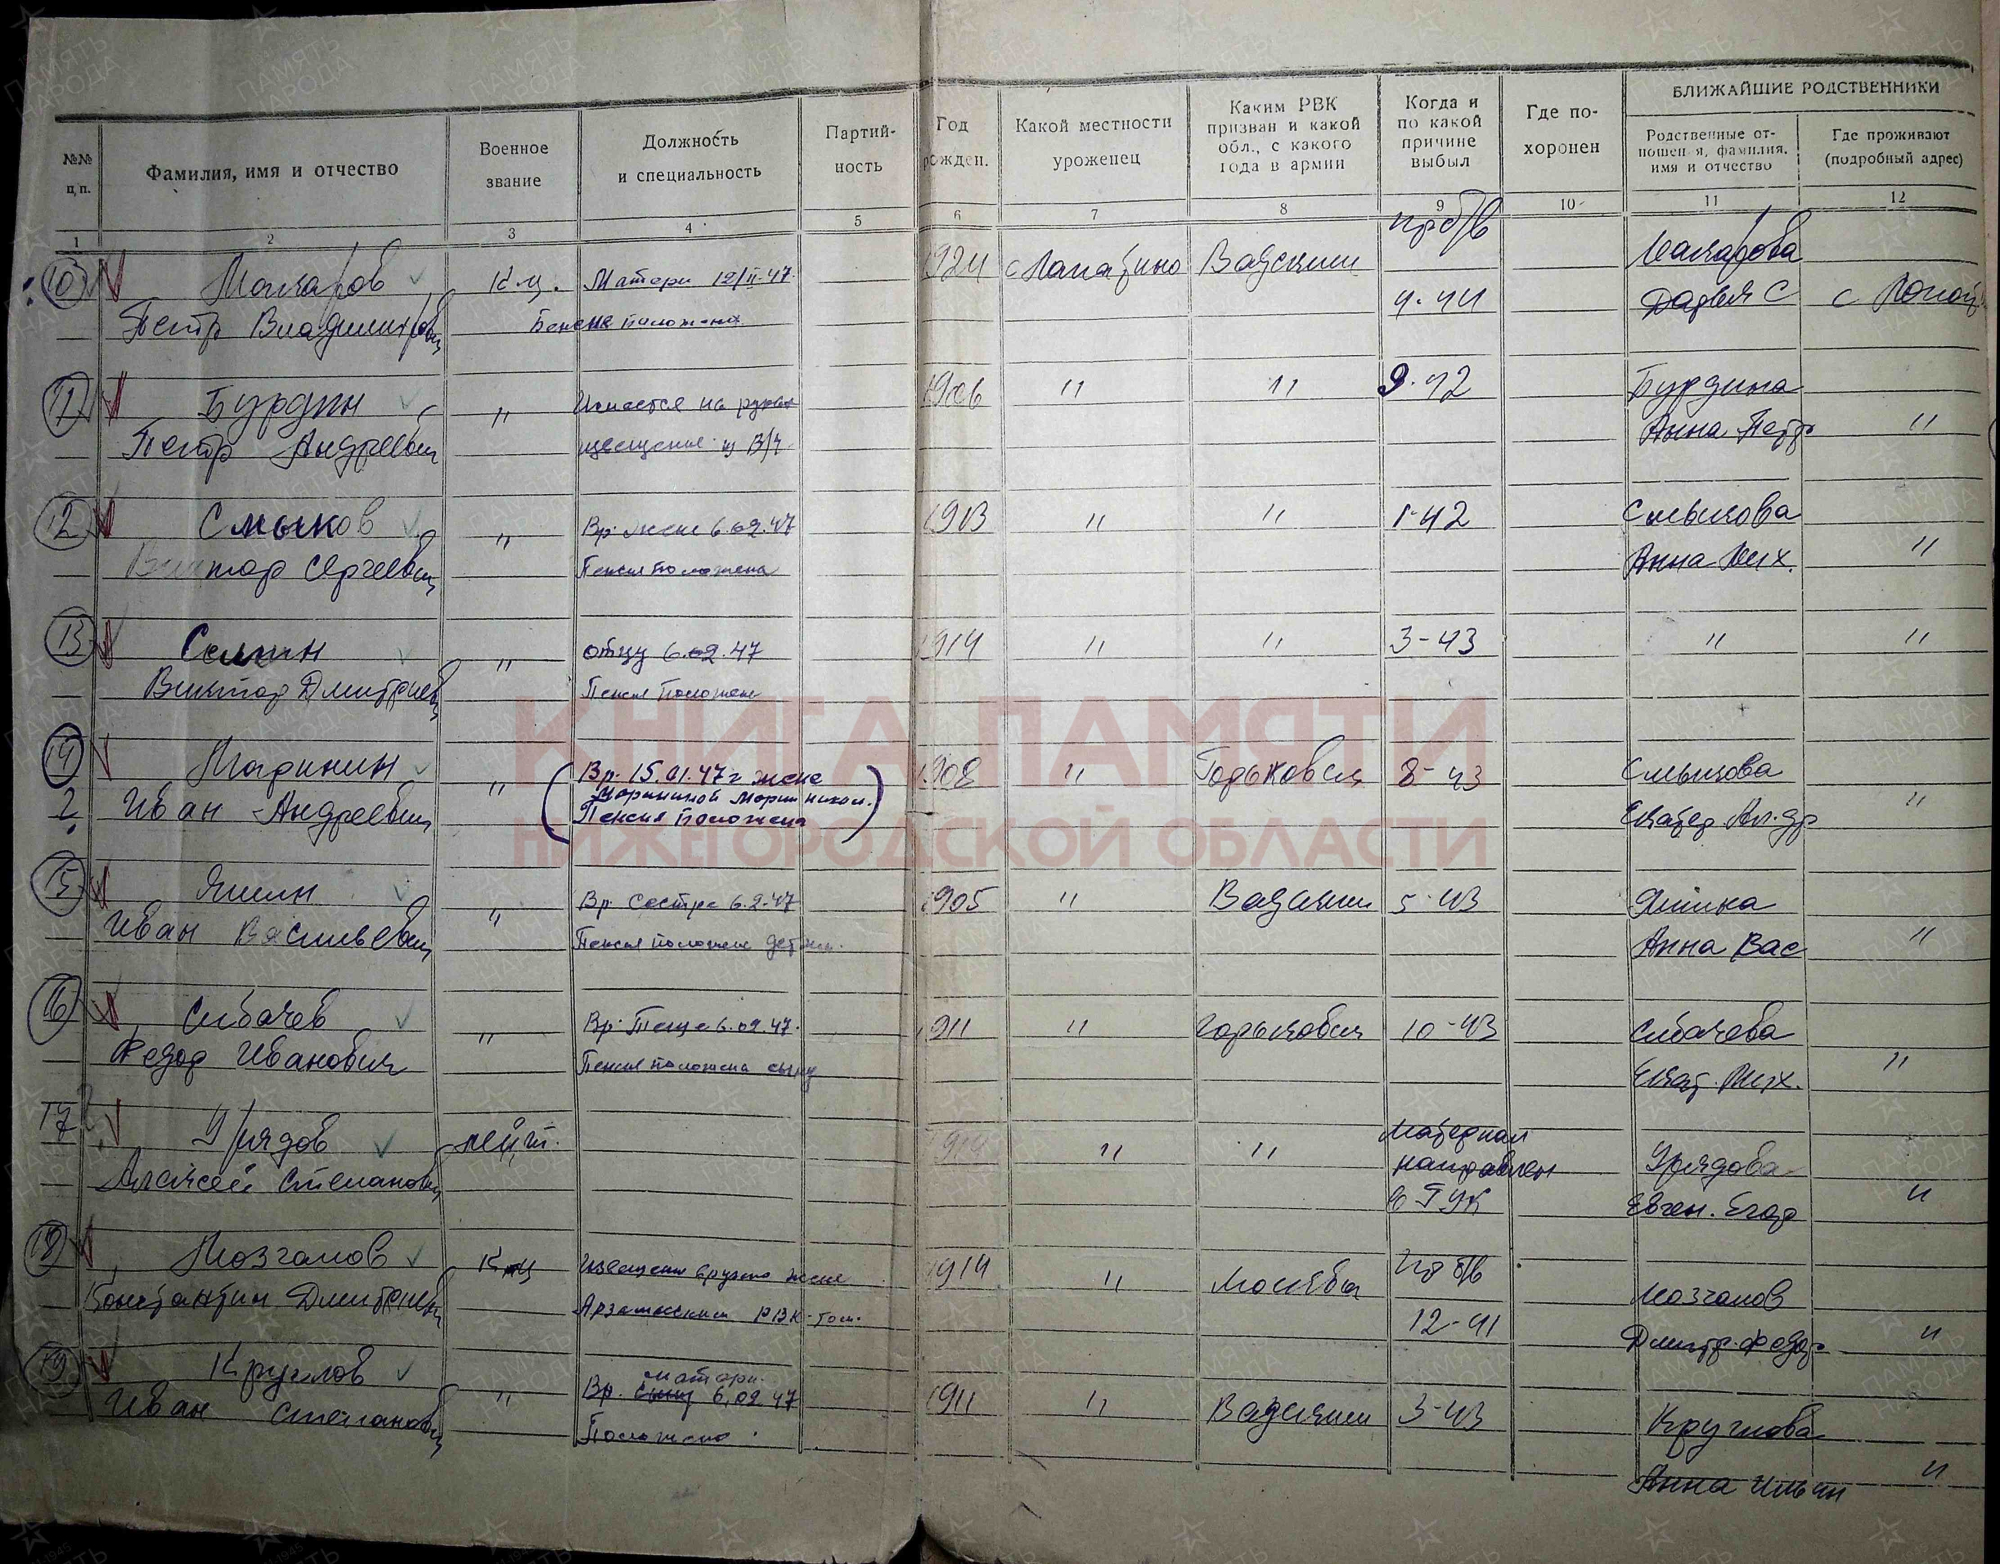 БЛИЖАЙШИЕ РОДСТВЕННИКИ
№№ ц.п.
Фамилия, имя и отчество
Военное звание
Должность и специальность
Партийность
Год рожден.
Какой местности уроженец
Каким РВК призван и какой обл., с какого года в армии
Когда и по какой причине выбыл
Где похоронен
Родственные отношения, фамилия, имя и отчество
Где проживают (подробный адрес)
1 2 3 4 5 6 7 8 9 10 11 12
пр б/в
10 Макаров К-ц. Матери 12/II-47. 1924 Вадским Макарова
Петр Владимиров 4-44 Дарья С
11 Бурдин " Имеется на руках 1906 " " 9-42 Бурдина
Петр Андреевич извещение В/ч. Анна Петр "
12 Смыков " Вр. жене 6.02.47 1913 " " 1-42 Смыкова
Виктор Сергеевич Пенсия положена Анна Мих. "
13 " отцу 6.02.47 1914 " " 3-43 " "
Виктор Дмитриев Пенсия положена
КНИГА ПАМЯТИ
НИЖЕГОРОДСКОЙ ОБЛАСТИ
14 Маринин " Вр. 15.01.47 г жене 1908 " Горьковск 8-43 Смыкова
2 Иван Андреевич Марининой Мари Никол. "
Пенсия положена
15 Яшин " Вр. Сестре 6.2.47 1905 " Вадским 5-43 Яшина
Иван Васильевич Пенсия положена детям. Анна Вас "
16 Сибачев " Вр. Теще 6.02.47. 1911 " Горьковск 10-43 Сибачева
Федор Иванович Пенсия положена сыну Екат. Мих. "
17 Урядов лейт. " " Материал
Алексей Степанов направлен Урядова
в ГУК Евген. Егор "
18 Мозгалов К-ц Извещение вручено жене 1914 " Москва пр б/в
Константин Дмитриев Арзамасским РВК-том. 12-41 Мозгалов
Дмитр. Федор "
19 Круглов " Вр. матери 6.02.47 1911 " Вадским 3-43 Круглова
Иван Степанов Положено Анна Ильин "